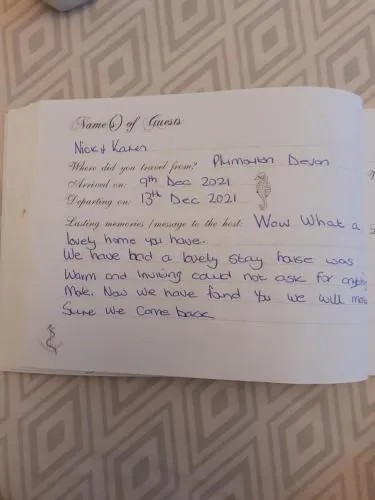 Name(s) of Guests
Nick & Karen
Where did you travel from? Plymouton Devon
Arrived on: 9th Dec 2021
Departing on: 13th Dec 2021
Lasting memories / message to the host: Wow What a
lovely home you have.
We have had a lovely stay house was
Warm and Inviting could not ask for anything
More. Now we have found You we will make
Sure we come back